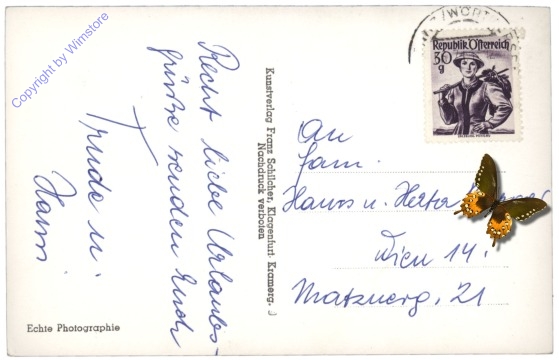 Copyright by Wimstore
Recht liebe Urlaubs-
grüße senden Euch
Trude u.
Hans
Echte Photographie
Kunstverlag Franz Schilcher, Klagenfurt, Kramerg. 3
Nachdruck verboten
/WÖRT
Republik Österreich
30
g
An
Fam.
Hans u. Herta
Wien 14.
Matznerg. 21